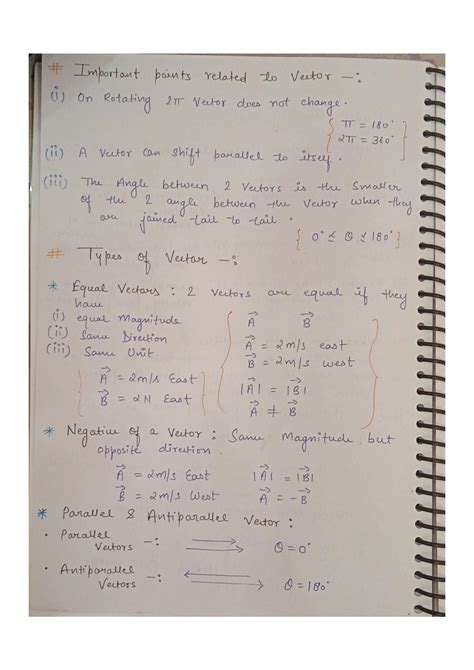 # Important points related to Vector -:
(i) On Rotating 2π Vector does not change.
{ π = 180°
2π = 360° }
(ii) A Vector can shift parallel to itself.
(iii) The Angle between 2 Vectors is the smaller
of the 2 angle between the Vector when they
are joined tail to tail.
{ 0° ≤ θ ≤ 180° }
# Types of Vector -:
* Equal Vectors : 2 Vectors are equal if they
have
(i) equal Magnitude
(ii) Same Direction
(iii) Same Unit
{ A⃗ = 2m/s East
B⃗ = 2N East }
{ A⃗ B⃗
A⃗ = 2m/s east
B⃗ = 2m/s west
|A⃗| = |B⃗|
A⃗ ≠ B⃗ }
* Negative of a Vector : Same Magnitude but
opposite direction.
A⃗ = 2m/s East |A⃗| = |B⃗|
B⃗ = 2m/s West A⃗ = -B⃗
* Parallel & Antiparallel Vector :
· Parallel
Vectors -: θ = 0°
· Antiparallel
Vectors -: θ = 180°